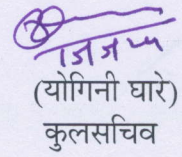 (योगिनी घारे)
कुलसचिव